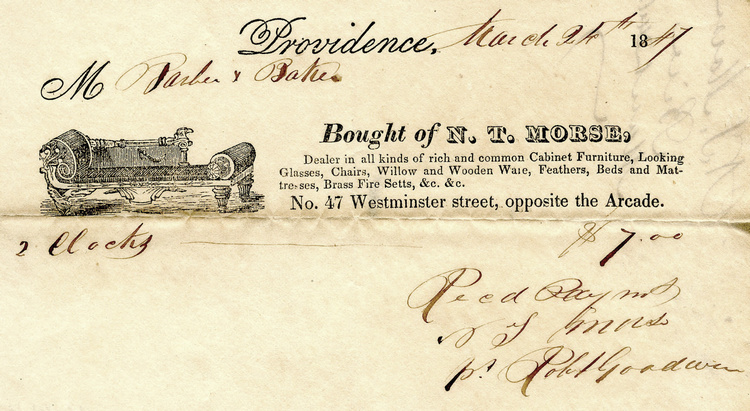 Providence, March 24th 1847
M Barber & Baker
Bought of N. T. MORSE,
Dealer in all kinds of rich and common Cabinet Furniture, Looking
Glasses, Chairs, Willow and Wooden Ware, Feathers, Beds and Mat-
tresses, Brass Fire Setts, &c. &c.
No. 47 Westminster street, opposite the Arcade.
2 Clocks $7.00
Recd Paymt
N T Morse
pr Robt Goodwin